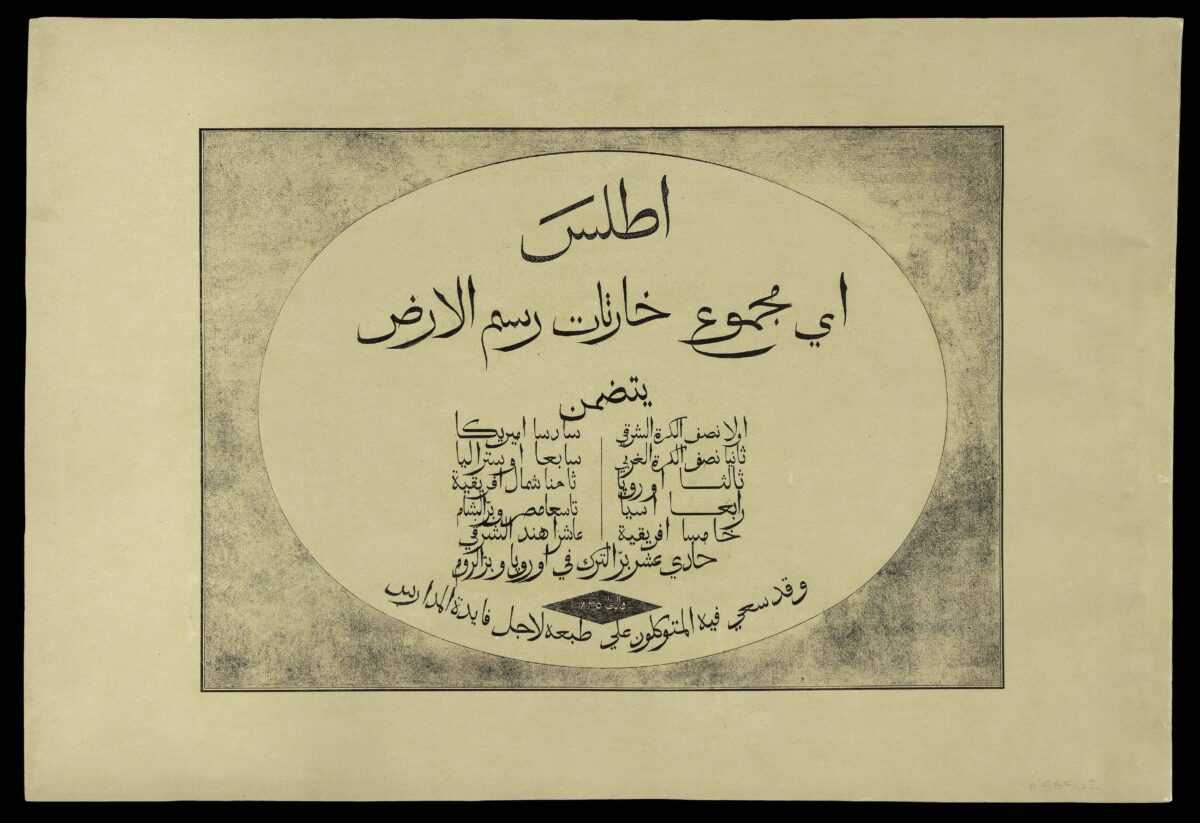 اطلسَ
اي مجموع خارتات رسم الارض
يتضمن
اولا نصف الكرة الشرقي
ثانيا نصف الكرة الغربي
ثالثـــا اوروپا
رابعـــا اسيا
خامسا افريقية
سادسا اميريكا
سابعا اوستراليا
ثامنا شمال افريقية
تاسعا مصر وبرّ الشام
عاشرا هند الشرقي
حادي عشر برّ الترك في اوروپا وبرّ الروم
وقد سعي فيه المتوكلون علي طبعه لاجل فايدة المدارس
056502